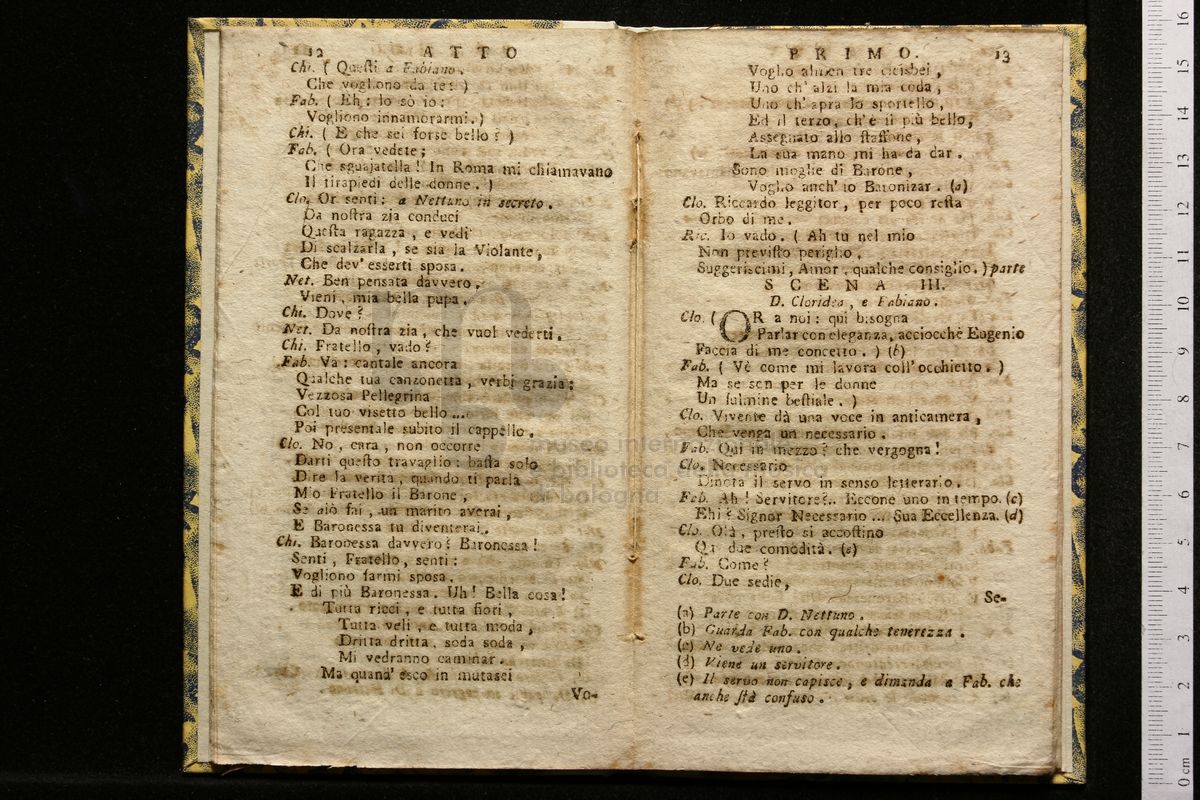 12 ATTO
Chi. ( Queſti a Fabiano.
Che vogliono da te? )
Fab. ( Eh; lo sò io:
Vogliono innamorarmi. )
Chi. ( E che sei forse bello? )
Fab. ( Ora vedete;
Che sguajatella! In Roma mi chiamavano
Il tirapiedi delle donne. )
Clo. Or senti: a Nettuno in secreto.
Da noſtra zia conduci
Queſta ragazza, e vedi
Di scalzarla, se sia la Violante,
Che dev' esserti sposa.
Net. Ben pensata davvero.
Vieni, mia bella pupa.
Chi. Dove?
Net. Da noſtra zia, che vuol vederti.
Chi. Fratello, vado?
Fab. Va: cantale ancora
Qualche tua canzonetta, verbi grazia:
Vezzosa Pellegrina
Col tuo visetto bello ...
Poi presentale subito il cappello.
Clo. No, cara, non occorre
Darti queſto travaglio: baſta solo
Dire la verità, quando ti parla
Mio Fratello il Barone,
Se ciò fai, un marito averai,
E Baronessa tu diventerai.
Chi. Baronessa davvero? Baronessa!
Senti, Fratello, senti:
Vogliono farmi sposa.
E di più Baronessa. Uh! Bella cosa!
Tutta ricci, e tutta fiori,
Tutta veli, e tutta moda,
Dritta dritta, soda soda,
Mi vedranno caminar.
Ma quand' esco in mutasei
Vo-
PRIMO. 13
Voglio almen tre cicisbei,
Uno ch' alzi la mia coda,
Uno ch' apra lo sportello,
Ed il terzo, ch'è il più bello,
Assegnato allo ſtaffone,
La sua mano mi ha da dar.
Sono moglie di Barone,
Voglio anch' io Baronizar. (a)
Clo. Riccardo leggitor, per poco reſta
Orbo di me.
Ric. Io vado. ( Ah tu nel mio
Non previſto periglio,
Suggeriscimi, Amor, qualche consiglio. ) parte
SCENA III.
D. Cloridea, e Fabiano.
Clo. ( OR a noi: qui bisogna
Parlar con eleganza, acciocchè Eugenio
Faccia di me concetto. ) (b)
Fab. ( Vè come mi lavora coll' occhietto. )
Ma se son per le donne
Un fulmine beſtiale. )
Clo. Vivente dà una voce in anticamera,
Che venga un necessario.
Fab. Qui in mezzo? che vergogna!
Clo. Necessario
Dinota il servo in senso letterario.
Fab. Ah! Servitore?.. Eccone uno in tempo. (c)
Ehi? Signor Necessario ... Sua Eccellenza. (d)
Clo. Olà, preſto si accoſtino
Quì due comodità. (e)
Fab. Come?
Clo. Due sedie,
Se-
(a) Parte con D. Nettuno.
(b) Guarda Fab. con qualche tenerezza.
(c) Ne vede uno.
(d) Viene un servitore.
(e) Il servo non capisce, e dimanda a Fab. che
anche ſtà confuso.
museo internazionale
biblioteca della musica
di bologna
16
15
14
13
12
11
10
9
8
7
6
5
4
3
2
1
0 cm